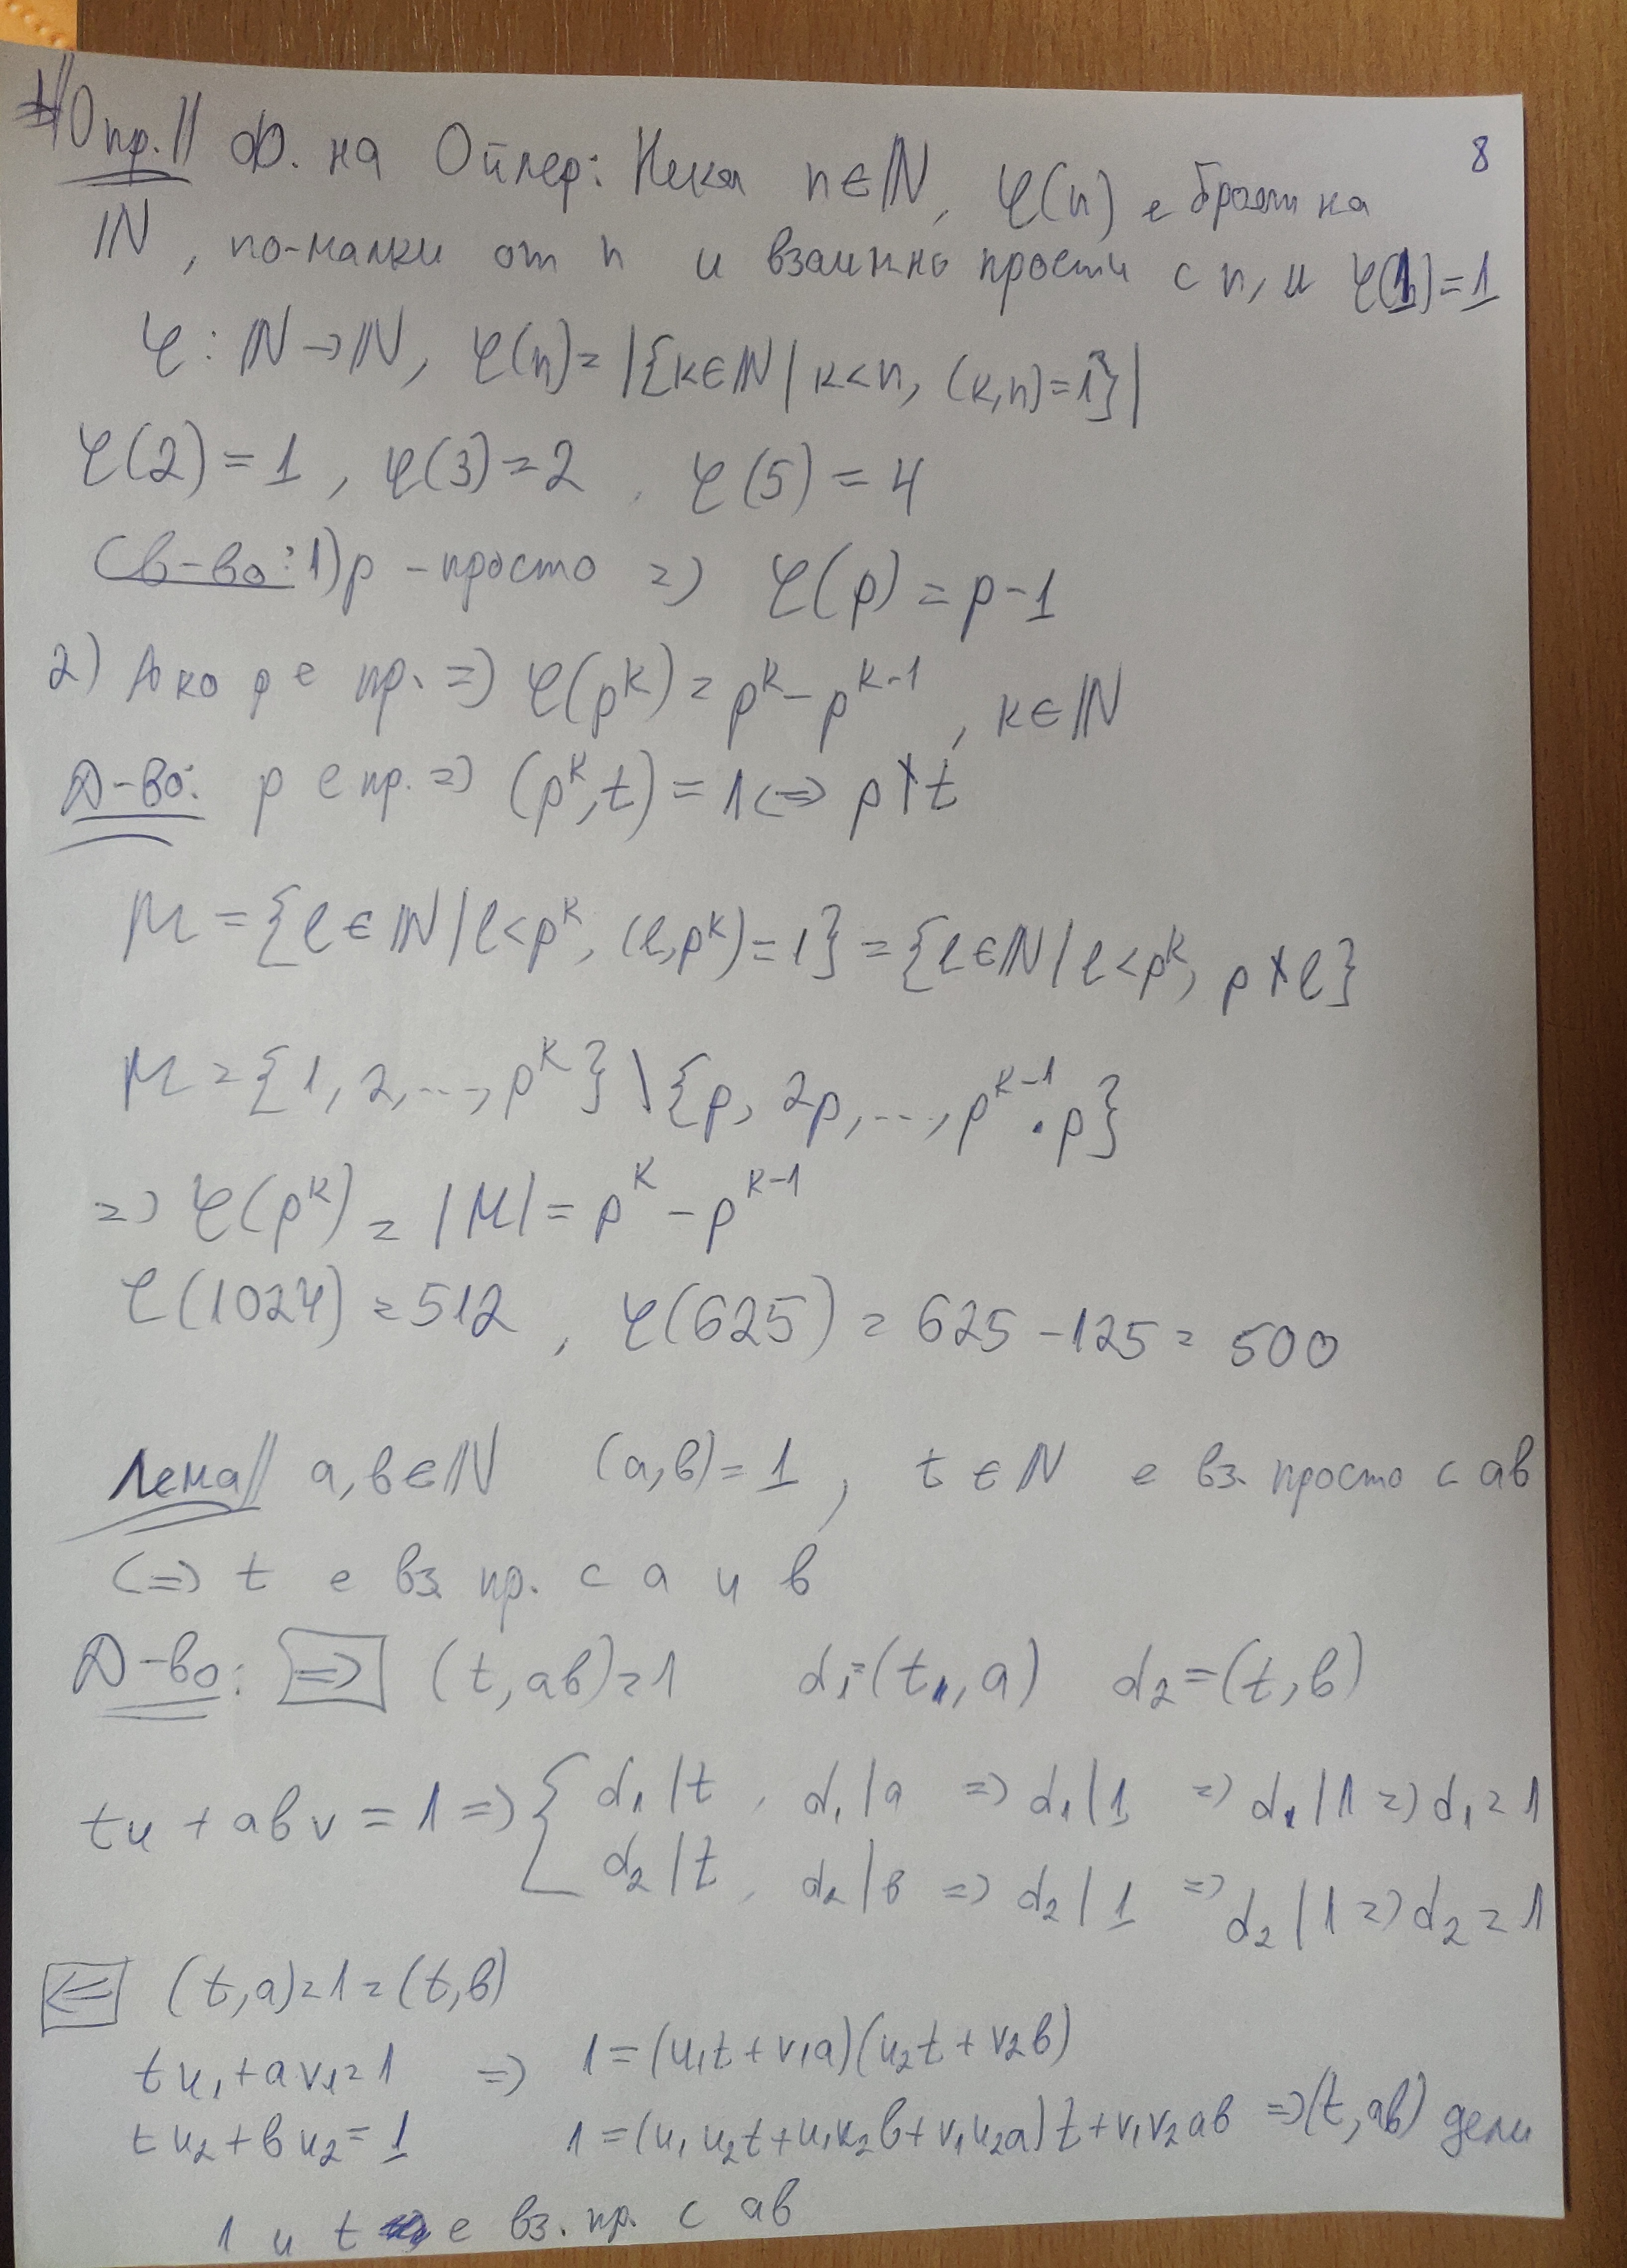 8
Опр.|| Ф. на Ойлер: Нека n∈ℕ, φ(n) е броят на
ℕ, по-малки от n и взаимно прости с n, и φ(1)=1
φ: ℕ→ℕ, φ(n)=|{k∈ℕ | k<n, (k,n)=1}|
φ(2)=1, φ(3)=2, φ(5)=4
Св-во: 1) p - просто => φ(p)=p-1
2) Ако p е пр. => φ(p^k)=p^k-p^{k-1}, k∈ℕ
Д-во: p е пр. => (p^k,t)=1 <=> p∤t
M={l∈ℕ | l<p^k, (l,p^k)=1}={l∈ℕ | l<p^k, p∤l}
M={1,2,...,p^k}\{p, 2p,..., p^{k-1}.p}
=> φ(p^k)=|M|=p^k-p^{k-1}
φ(1024)=512, φ(625)=625-125=500
Лема|| a,b∈ℕ (a,b)=1, t∈N е вз. просто с ab
<=> t е вз. пр. с a и b
Д-во: => (t,ab)=1 d₁=(t,a) d₂=(t,b)
tu+abv=1 => { d₁|t, d₁|a => d₁|1 => d₁|1 => d₁=1
d₂|t, d₂|b => d₂|1 => d₂|1 => d₂=1
<= (t,a)=1=(t,b)
tu₁+av₁=1 => 1=(u₁t+v₁a)(u₂t+v₂b)
tu₂+bu₂=1 1=(u₁u₂t+u₁v₂b+v₁u₂a)t+v₁v₂ab => (t,ab) дели
1 и t е вз. пр. с ab